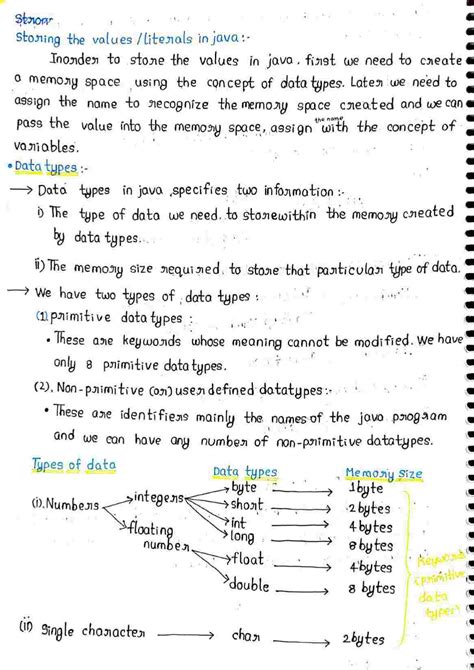 Storing the values /literals in java:-
Inorder to store the values in java, first we need to create
a memory space, using the concept of datatypes. Later we need to
assign the name to recognize the memory space created and we can
pass the value into the memory space, assign the name with the concept of
variables.
• Data types :-
→ Data types in java ,specifies two information :-
i) The type of data we need to storewithin the memory created
by data types.
ii) The memory size required, to store that particular type of data.
→ We have two types of data types :
(1) primitive data types :
• These are keywords whose meaning cannot be modified. We have
only 8 primitive datatypes.
(2). Non-primitive (or) user defined datatypes:-
• These are identifiers mainly the names of the java program
and we can have any number of non-primitive datatypes.
Types of data Data types Memory size
(i). Numbers → integers → byte → 1byte
→ short → 2bytes
→ int → 4bytes
→ long → 8bytes
→ floating number → float → 4bytes
→ double → 8 bytes
Keyword
(primitive
data
types)
(ii) Single character → char → 2bytes